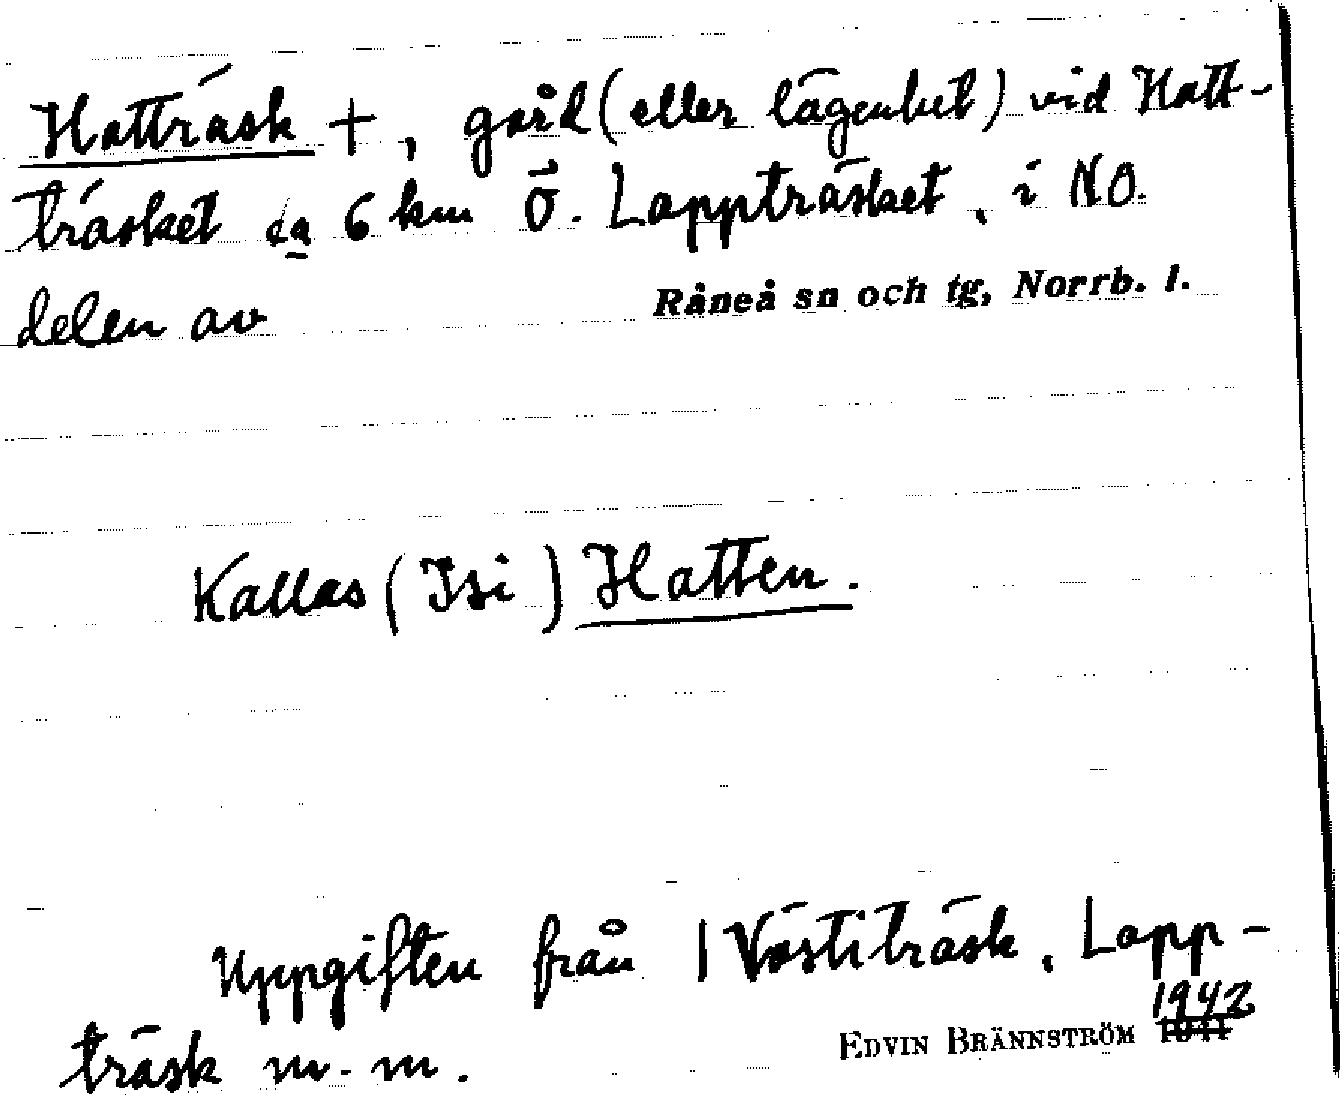 Hatträsk +, gård (eller lägenhet) vid Hatt-
träsket ca 6 km Ö. Lappträsket, i NO.
delen av Råneå sn och tg, Norrb. l.
Kallas (Isi) Hatten.
Uppgiften från 1 Västiträsk, Lapp-
träsk m. m. EDVIN BRÄNNSTRÖM 1942 1941